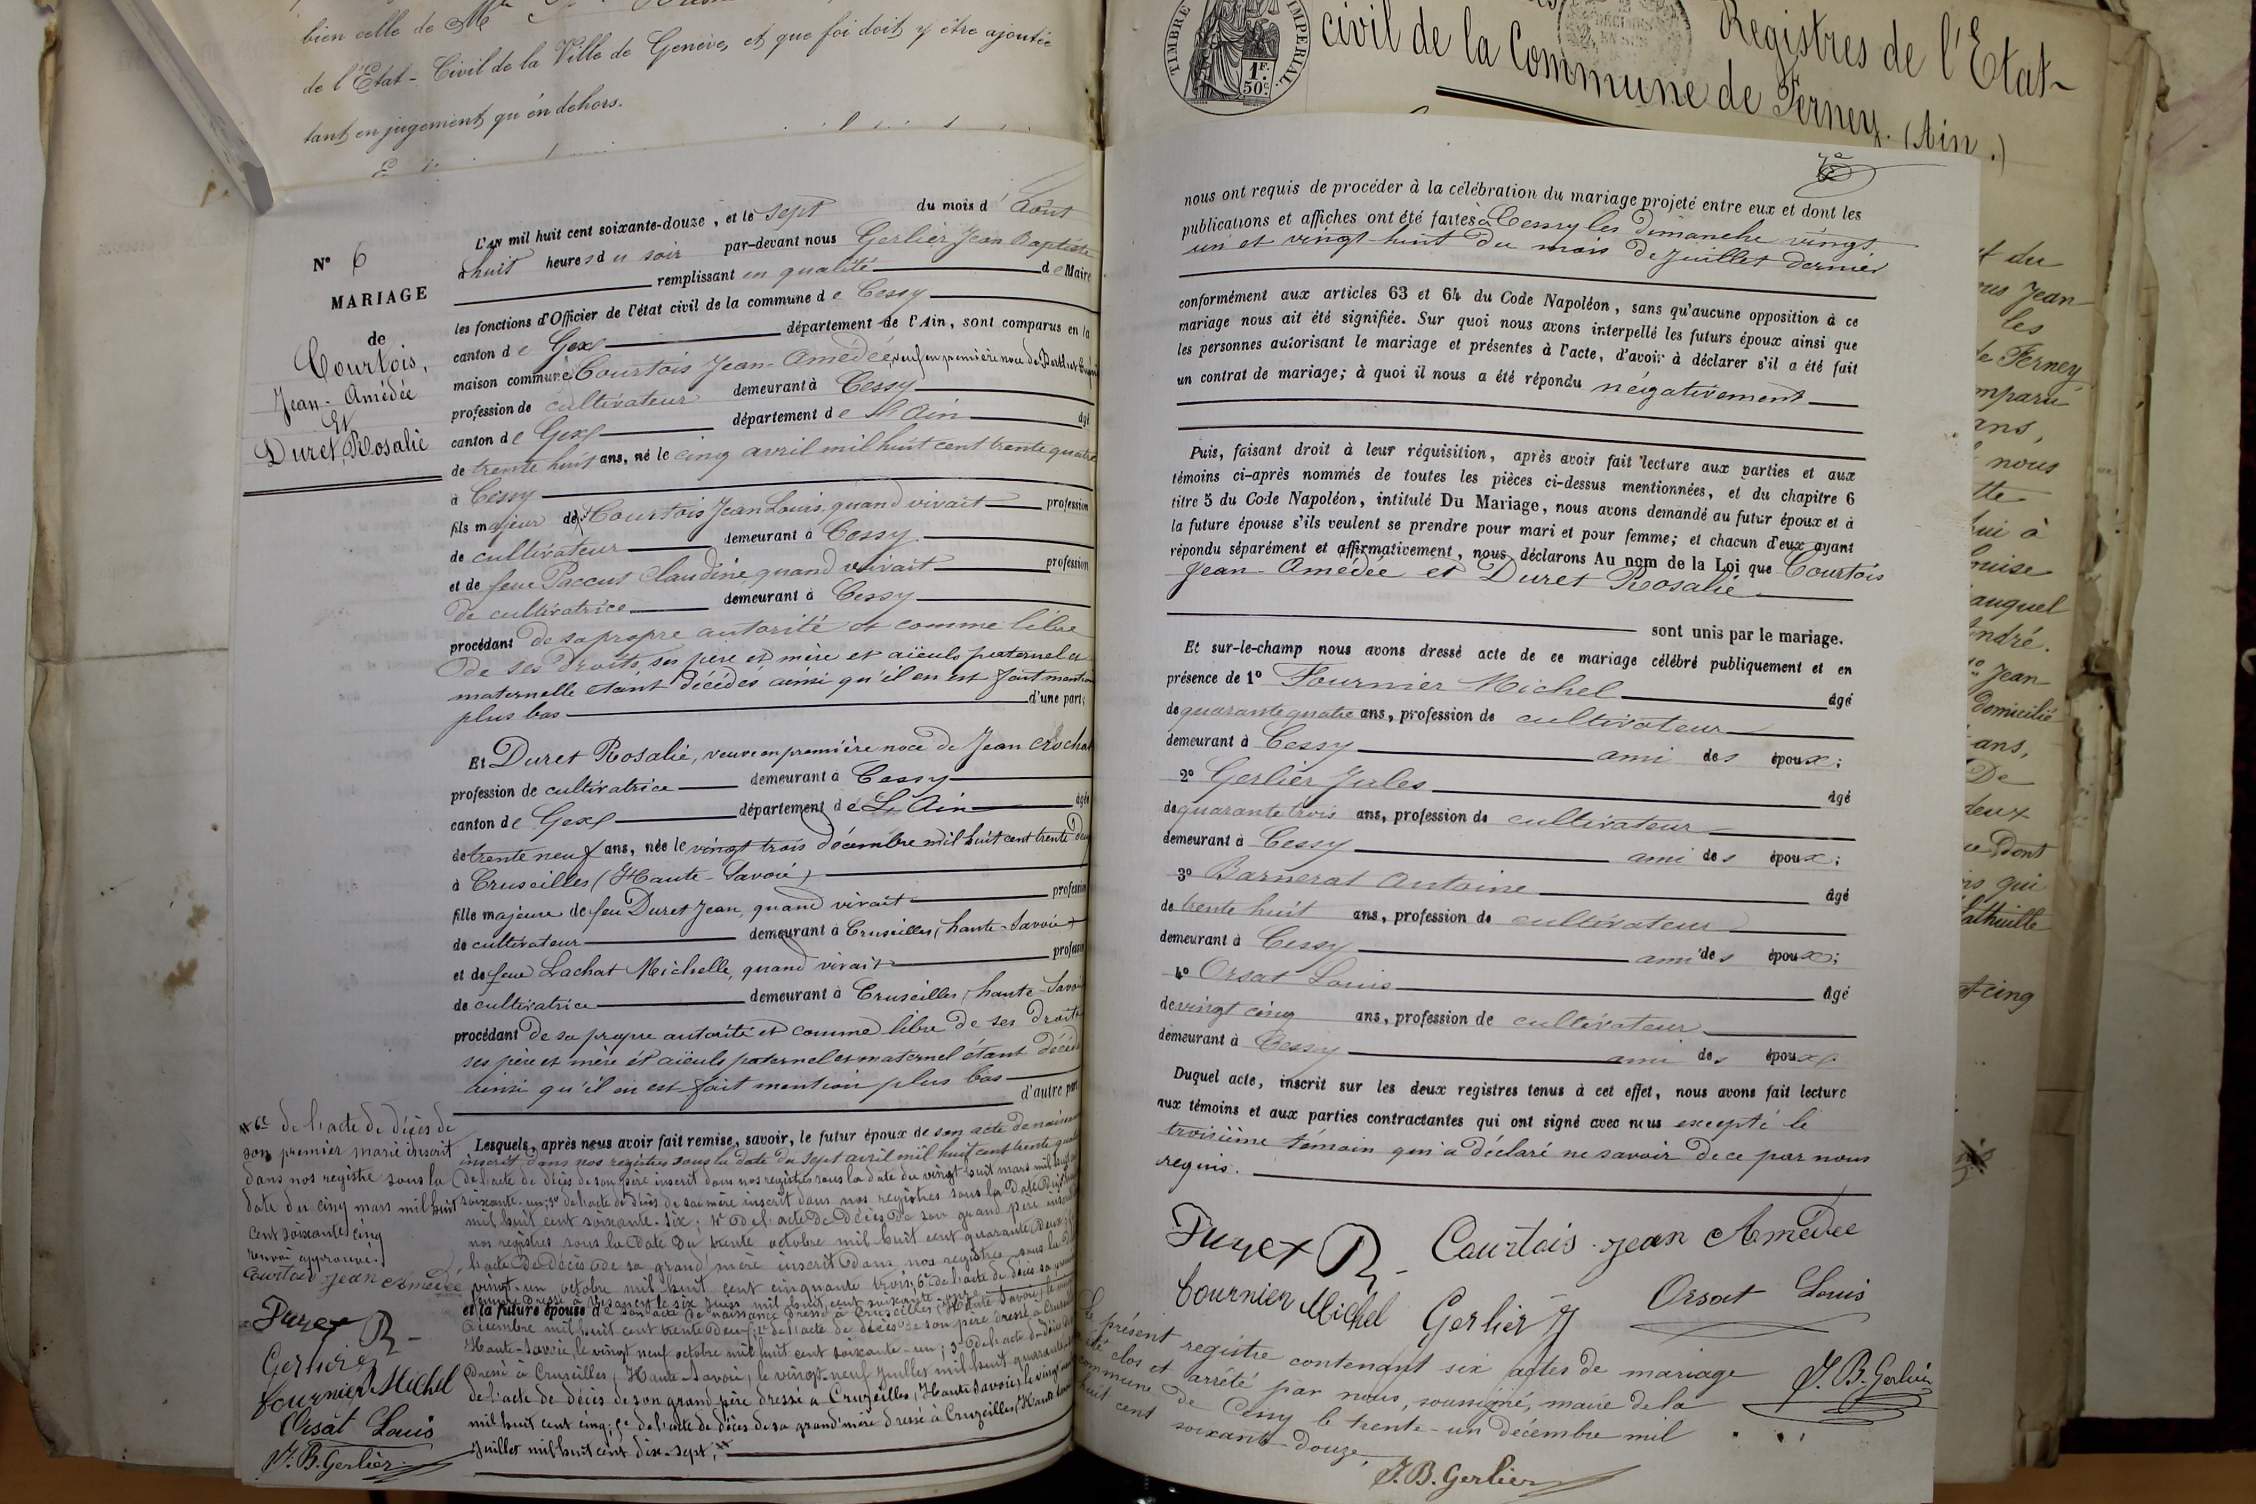 bien celle de Mr
de l'Etat-Civil de la Ville de Genève, et que foi doit y être ajoutée
tant en jugement qu'en dehors.
TIMBRE IMPERIAL
1F. 50c.
Registres de l'Etat-
civil de la Commune de Ferney. (Ain.)
N° 6
MARIAGE
de
Courtois,
Jean-Amédée
Et
Duret, Rosalie
L'AN mil huit cent soixante-douze, et le sept du mois d'Août
à huit heures du soir par-devant nous Gerlier Jean Baptiste
remplissant en qualité de Maire
les fonctions d'Officier de l'état civil de la commune de Cessy
canton de Gex département de l'Ain, sont comparus en la
maison commune Courtois Jean-Amédée, veuf en première noce de
profession de cultivateur demeurant à Cessy
canton de Gex département de L'Ain âgé
de trente huit ans, né le cinq avril mil huit cent trente quatre
à Cessy
fils majeur de Courtois Jean Louis, quand vivait profession
de cultivateur demeurant à Cessy.
et de feue Paccut Claudine quand vivait profession
de cultivatrice demeurant à Cessy
procédant de sa propre autorité et comme libre
de ses droits ses père et mère et aïeuls paternel et
maternelle étant décédés ainsi qu'il en est fait mention
plus bas d'une part;
Et Duret Rosalie, veuve en première noce de Jean Crochat
profession de cultivatrice demeurant à Cessy
canton de Gex département de L'Ain âgée
de trente neuf ans, née le vingt trois décembre mil huit cent trente deux
à Cruseilles (Haute-Savoie)
fille majeure de feu Duret Jean, quand vivait profession
de cultivateur demeurant à Cruseilles (haute-Savoie)
et de feue Lachat Michelle, quand vivait profession
de cultivatrice demeurant à Cruseilles, haute-Savoie
procédant de sa propre autorité et comme libre de ses droits
ses père et mère et aïeuls paternel et maternel étant décédés
ainsi qu'il en est fait mention plus bas
d'autre part
Lesquels, après nous avoir fait remise, savoir, le futur époux de son acte de naissance
inscrit dans nos registres sous la date du sept avril mil huit cent trente quatre
de l'acte de décès de son père inscrit dans nos registres sous la date du vingt huit mars mil huit cent
soixante-un; 3° de l'acte de décès de sa mère inscrit dans nos registres sous la date du
mil huit cent soixante-six; 4° de l'acte de décès de son grand père inscrit
nos registres sous la date du trente octobre mil huit cent quarante deux;
l'acte de décès de sa grand'mère inscrit dans nos registres sous la
vingt-un octobre mil huit cent cinquante trois; 6° de l'acte de décès sa
et la future épouse de son acte de naissance dressé à Cruseilles (Haute Savoie) le
décembre mil huit cent trente deux; 2° de l'acte de décès de son père dressé à
Haute-Savoie, le vingt neuf octobre mil huit cent soixante-un; 3° de l'acte de décès
dressé à Cruseilles, Haute Savoie, le vingt neuf juillet mil huit quarante
de l'acte de décès de son grand père dressé à Cruzeilles, (Haute Savoie) le vingt
mil huit cent cinq; 5° de l'acte de décès de sa grand'mère dressé à Cruzeilles, (Haute
juillet mil huit cent dix-sept;
6° de l'acte de décès de
son premier marié inscrit
dans nos registre sous la
date du cinq mars mil huit
cent soixante cinq
renvoi approuvé.
Courtois Jean Amédée
Duret R
Gerlier J
fournier Michel
Orsat Louis
J. B. Gerlier
nous ont requis de procéder à la célébration du mariage projeté entre eux et dont les
publications et affiches ont été faites à Cessy les dimanche vingt
un et vingt-huit du mois de Juillet dernier
conformément aux articles 63 et 64 du Code Napoléon, sans qu'aucune opposition à ce
mariage nous ait été signifiée. Sur quoi nous avons interpellé les futurs époux ainsi que
les personnes autorisant le mariage et présentes à l'acte, d'avoir à déclarer s'il a été fait
un contrat de mariage; à quoi il nous a été répondu négativement
Puis, faisant droit à leur réquisition, après avoir fait lecture aux parties et aux
témoins ci-après nommés de toutes les pièces ci-dessus mentionnées, et du chapitre 6
titre 5 du Code Napoléon, intitulé Du Mariage, nous avons demandé au futur époux et à
la future épouse s'ils veulent se prendre pour mari et pour femme; et chacun d'eux ayant
répondu séparément et affirmativement, nous déclarons Au nom de la Loi que Courtois
Jean-Amédée et Duret Rosalie
sont unis par le mariage.
Et sur-le-champ nous avons dressé acte de ce mariage célébré publiquement et en
présence de 1° Fournier Michel âgé
de quarante quatre ans, profession de cultivateur
demeurant à Cessy ami des époux;
2° Gerlier Jules âgé
de quarante trois ans, profession de cultivateur
demeurant à Cessy ami des époux;
3° Barnerat Antoine âgé
de trente huit ans, profession de cultivateur
demeurant à Cessy ami des époux;
4° Orsat Louis âgé
de vingt cinq ans, profession de cultivateur
demeurant à Cessy ami des époux
Duquel acte, inscrit sur les deux registres tenus à cet effet, nous avons fait lecture
aux témoins et aux parties contractantes qui ont signé avec nous excepté le
troisième témoin qui a déclaré ne savoir de ce par nous
requis.
Duret R Courtois Jean Amédée
fournier Michel Gerlier J Orsat Louis
Le présent registre contenant six actes de mariage
été clos et arrêté par nous, soussigné, maire de la
commune de Cessy le trente-un décembre mil
huit cent soixante-douze,
J. B. Gerlier
J. B. Gerlier
du
Jean
les
de Ferney
ans,
nous
à
auquel
André.
Jean
domicilié
ans,
De
deux
Dont
qui
cinq